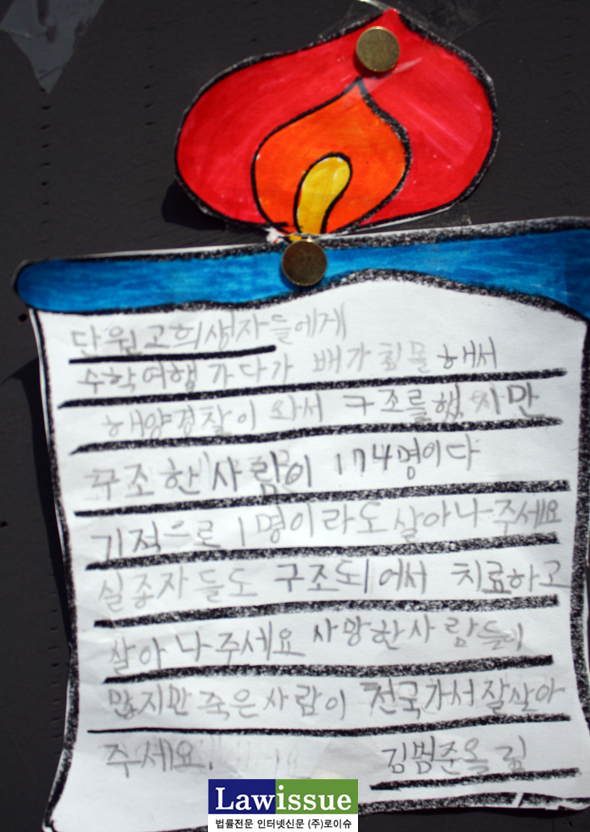 단원고희생자들에게
수학여행 가다가 배가침몰해서
해양경찰이 와서 구조를했지만
구조한 사람이 174명이다
기적으로 1명이라도살아나주세요
실종자들도 구조되어서 치료하고
살아나주세요 사망한사람들이
많지만 죽은사람이 천국가서잘살아
주세요!
김범준올림
Lawissue
법률전문 인터넷신문 (주)로이슈